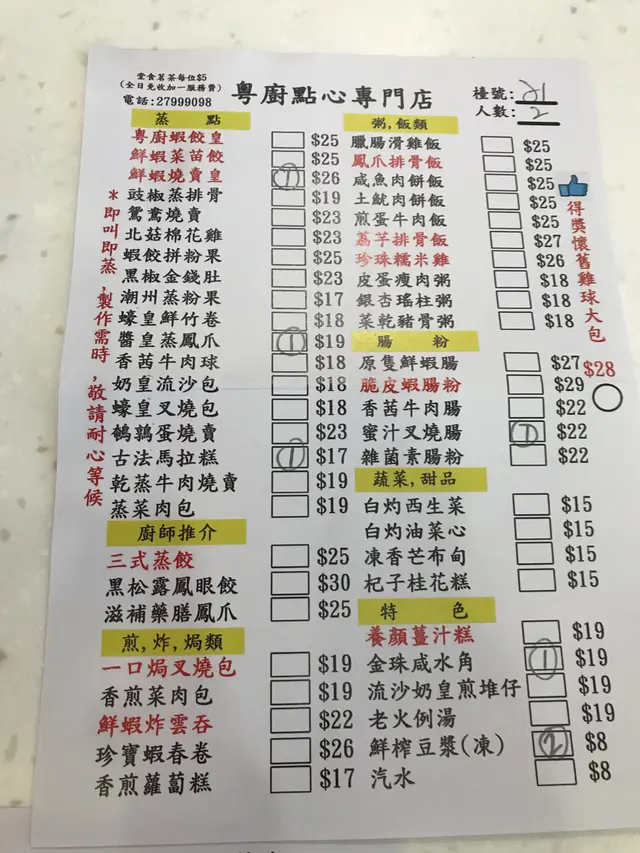 堂食茗茶每位$5
(全日免收加一服務費)
電話:27999098
粵廚點心專門店
檯號: 21
人數: 2
蒸 點
粵廚蝦餃皇 $25
鮮蝦菜苗餃 $25
鮮蝦燒賣皇 1 $26
豉椒蒸排骨 $19
鴛鴦燒賣 $23
北菇棉花雞 $23
蝦餃拼粉果 $25
黑椒金錢肚 $23
潮州蒸粉果 $17
蠔皇鮮竹卷 $18
醬皇蒸鳳爪 1 $19
香茜牛肉球 $18
奶皇流沙包 $18
蠔皇叉燒包 $18
鵪鶉蛋燒賣 $23
古法馬拉糕 1 $17
乾蒸牛肉燒賣 $19
蒸菜肉包 $19
*即叫即蒸,製作需時,敬請耐心等候
廚師推介
三式蒸餃 $25
黑松露鳳眼餃 $30
滋補藥膳鳳爪 $25
煎,炸,焗類
一口焗叉燒包 $19
香煎菜肉包 $19
鮮蝦炸雲吞 $22
珍寶蝦春卷 $26
香煎蘿蔔糕 $17
粥,飯類
臘腸滑雞飯 $25
鳳爪排骨飯 $25
咸魚肉餅飯 $25
土魷肉餅飯 $25
煎蛋牛肉飯 $25
荔芋排骨飯 $27
珍珠糯米雞 $26
皮蛋瘦肉粥 $18
銀杏瑤柱粥 $18
菜乾豬骨粥 $18
得獎懷舊雞球大包
$28
腸 粉
原隻鮮蝦腸 $27
脆皮蝦腸粉 $29
香茜牛肉腸 $22
蜜汁叉燒腸 1 $22
雜菌素腸粉 $22
蔬菜,甜品
白灼西生菜 $15
白灼油菜心 $15
凍香芒布甸 $15
杞子桂花糕 $15
特 色
養顏薑汁糕 $19
金珠咸水角 1 $19
流沙奶皇煎堆仔 $19
老火例湯 $19
鮮榨豆漿(凍) 2 $8
汽水 $8